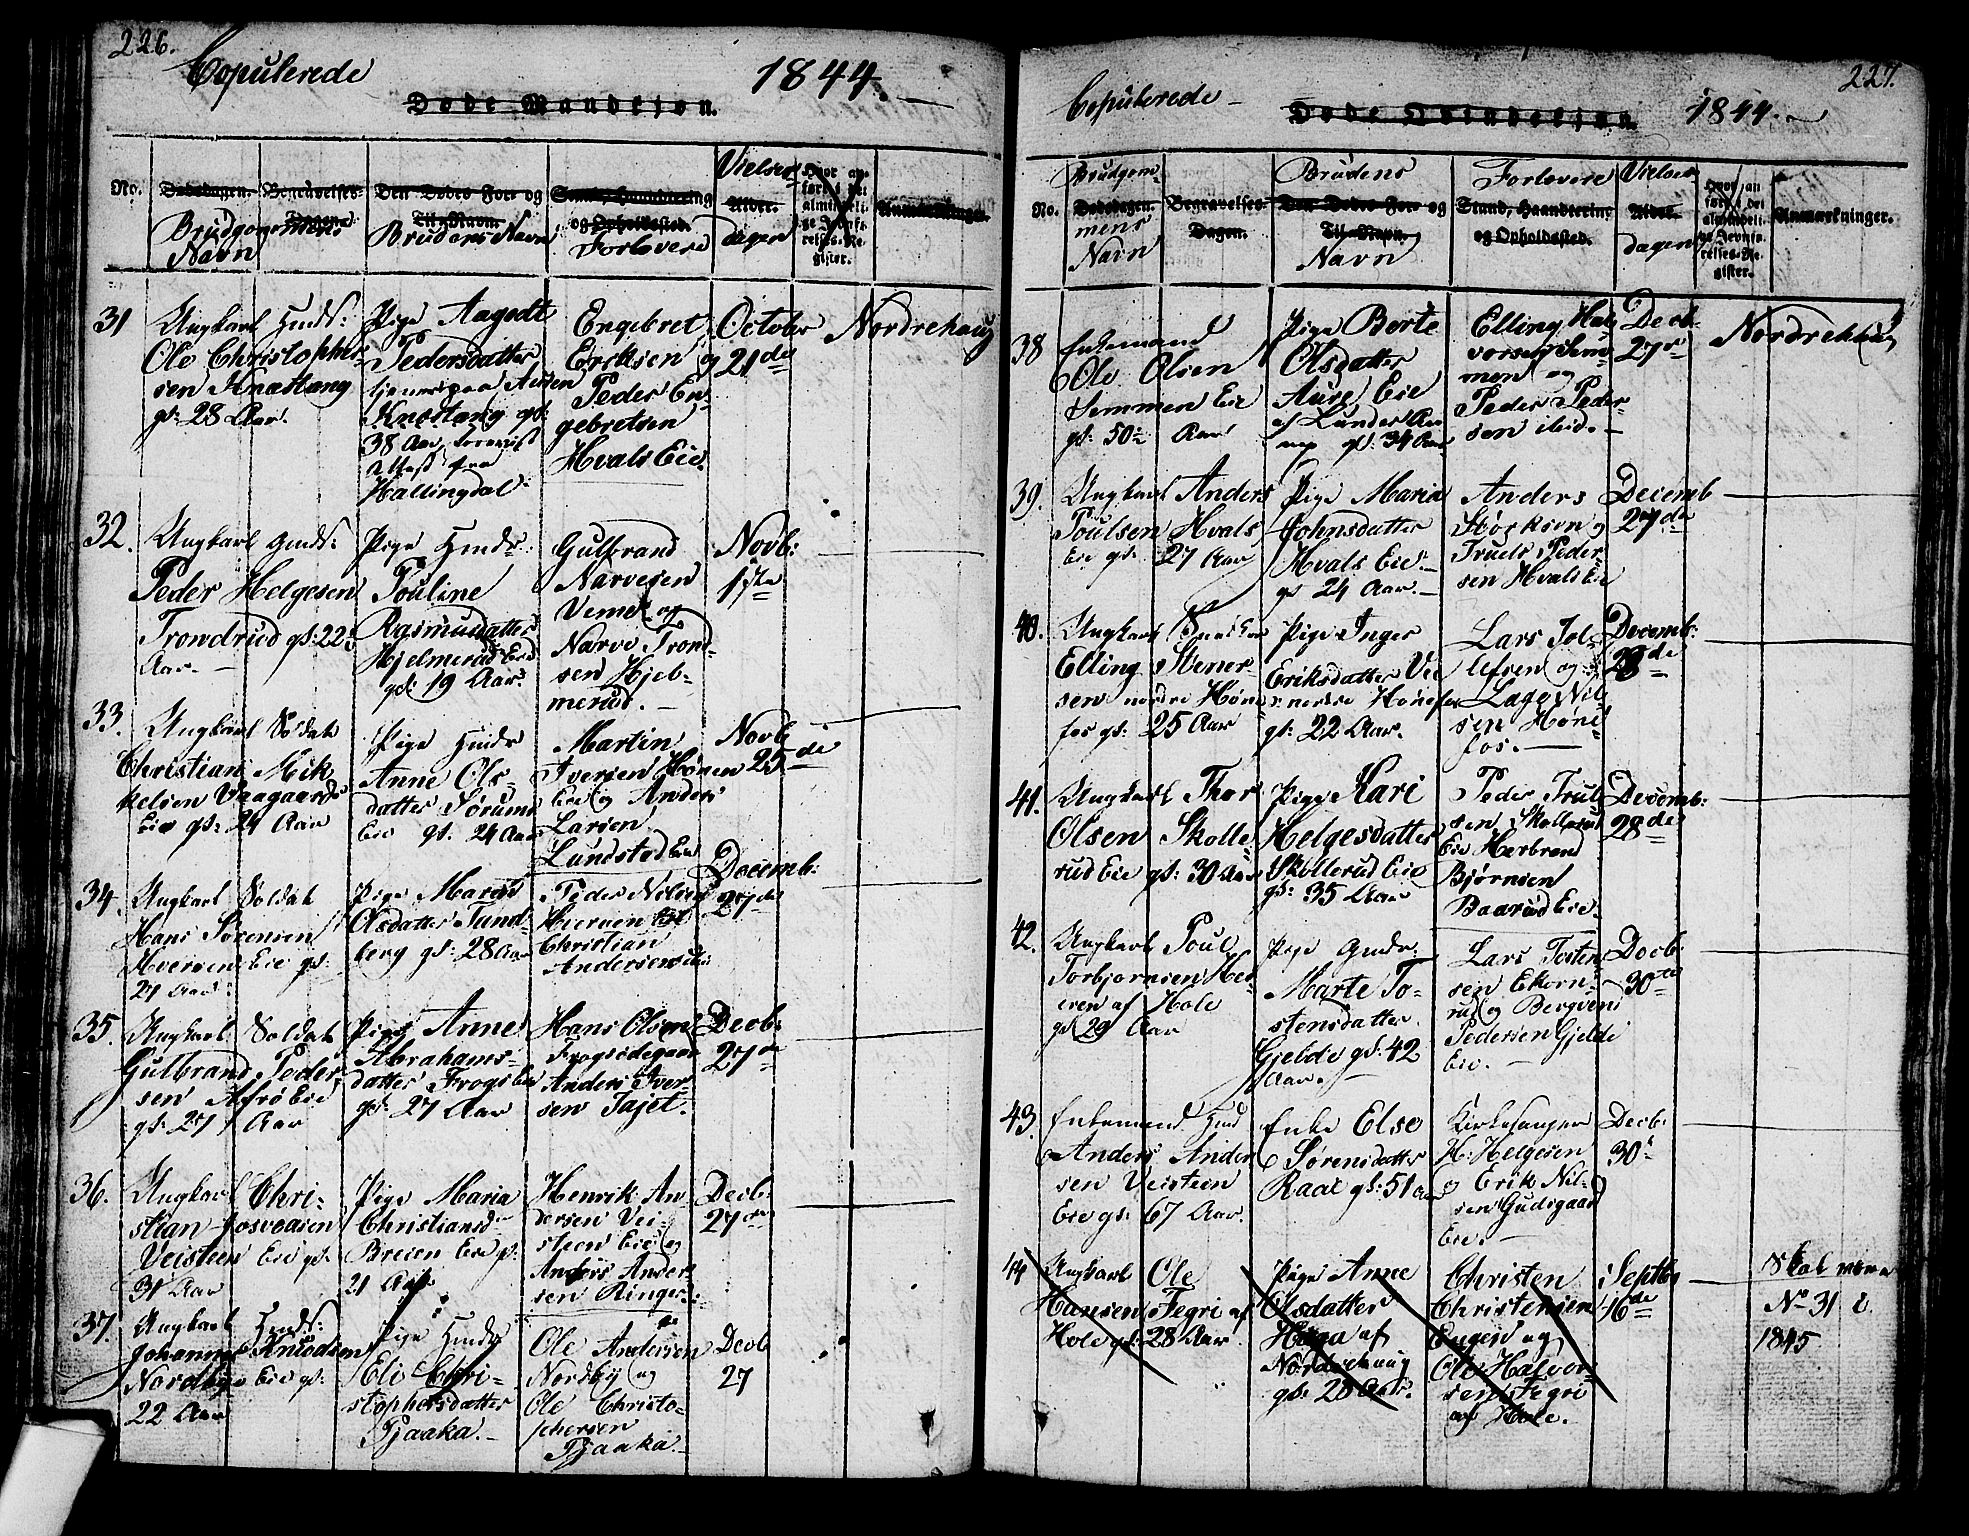 226.
Copulerede
1844.
Døde Mandkjøn.
No.
Dødsdagen.
Brudgommens
Navn
Begravelses-
Dagen.
Den Dødes For- og
Til-Navn.
Brudens Navn
Stand, Haandtering
og Opholdssted.
Forlovere
Vielses
Alder.
dagen
Hvor an-
ført i det
almindeli-
ge Jevnfø-
relses-Re-
gister.
Anmærkninger.
31
Ungkarl Gmds:
Ole Christopher
sen Knestang
gl: 28 Aar.
Pige Aagodt
Pedersdatter
Knestang gl:
38 Aar
Attest fra
Hallingdal.
Engebret
Ericksen og
Peder En-
gebretsen
Hvals Eie.
October
21de
Nordrehaug
32.
Ungkarl Gmds:
Peder Helgesen
Trondrud gl: 22
Aar.
Pige Gmds:
Pouline
Rasmusdatter
Hjelmerud Eie
gl: 19 Aar.
Gulbrand
Narvesen
Veme og
Narve Trond-
sen Hjel-
merud.
Novb:
1ste
33.
Ungkarl Soldat
Christian Mik
kelsen Vaagaards
Eie gl: 24 Aar
Pige Gmds
Anne Ols
datter Sørums
Eie gl. 24 Aar
Martin
Iversen Hønen
Eie og Anders
Larsen
Lundsted Eie
Novb
25de
34.
Ungkarl Soldat
Hans Sørensen
Hverven Eie gl:
27 Aar.
Pige Maren
Olsdatter Tand-
berg gl: 28 Aar
Peder Nilsen
Hverven
Christian
Andersen
Decemb:
27de
35.
Ungkarl Soldat
Gulbrand Peder
sen Eie
gl: 27 Aar
Pige Anne
Abrahams-
datter Frogs Eie
gl. 27 Aar
Hans Olsen
Anders Iver-
sen Tajet.
Decb:
27de
36.
Ungkarl Chri-
stian Josvasen
Veisteen Eie gl.
31 Aar
Pige Maria
Christiansd
Breien Eie gl:
21 Aar
Henrik An
dersen Vei-
steen Eie og
Anders Ander-
sen Ringer:
Decb:
27de
37.
Ungkarl Gmds:
Johannes Knudsen
Nordbye Eie gl:
22 Aar
Pige Gmds
Eli Chri-
stophersdatter
Pjaaka.
Ole Andersen
Nordby og
Ole Christo-
phersen
Pjaaka.
Decb
27
227.
Copulerede
1844.
Døde Qvindekjøn.
Brudgom-
No.
Dødsdagen.
mens
Navn
Begravelses-
Dagen.
Brudens
Den Dødes For- og
Til-Navn.
Navn
Forlovere
Stand, Haandtering
og Opholdssted.
Vielses
Alder.
dagen
Hvor an-
ført i det
almindeli-
ge Jevnfø-
relses-Re-
gister.
Anmærkninger.
38
Enkemand
Ole Olsen
Semmen Eie
gl: 50 Aar
Pige Berte
Olsdatter
Aure Eie
af Lunder
gl: 34 Aar
Elling Hal
vorsen Sem
men og
Peder Peder-
sen ibid.
Decb:
27de
Nordrehaug
39.
Ungkarl Anders
Poulsen Hvals
Eie gl: 27 Aar
Pige Maria
Johnsdatter
Hvals Eie
gl 24 Aar.
Anders
og
Truels Peder-
sen Hvals Eie
Decemb
27de
40.
Ungkarl
Elling Stener-
sen nordre Høne
fos gl: 25 Aar
Pige Inger
Eriksdatter
Hønefos
gl: 22 Aar.
Lars Tol-
lefsen og
Lage Nil-
sen Høne
fos.
Decemb:
28de
41.
Ungkarl Thor
Olsen Skolle
rud Eie gl: 30 Aar
Pige Kari
Helgesdatter
Skollerud Eie
gl: 35 Aar
Peder Trul
sen Skollerud
Eie Herbrand
Bjørnsen
Baarud Eie
Decemb:
28de
42.
Ungkarl Poul
Torbjornsen
af Hole
gl 29 Aar
Pige Gmds
Marte To-
stensdatter
Gjelde gl: 42
Aar.
Lars Tosten
sen Ekorn-
rud og Bergvend
Pedersen Gjelde
Eie.
Decb:
30te
43.
Enkemand Gmd
Anders Ander
sen Veisteen
Eie gl: 67 Aar.
Enke Else
Sørensdatter
Raae gl: 51 Aar
Kirkesanger
H: Helgesen
og Erik Nil-
sen Gudsgaard
Eie.
Decb:
30te
44
Ungkarl Ole
Hansen Fegri af
Hole gl: 28 Aar
Pige Anne
Olsdatter
af
Nordrehaug
gl: 28 Aar.
Christen
Christensen
og
Ole Halvor-
sen Fegri
af Hole.
Septbr
16de
Skal være
No 31 i
1845